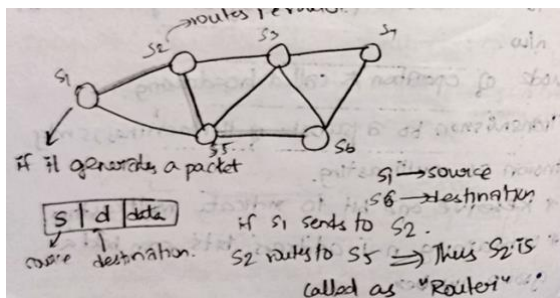 routes
S1
S2
S3
S4
S5
S6
if it generates a packet
s | d | data
destination.
S1 → source
S6 → destination
if S1 sends to S2.
S2 routes to S5 ⇒ Thus S2 is
called as "Router".